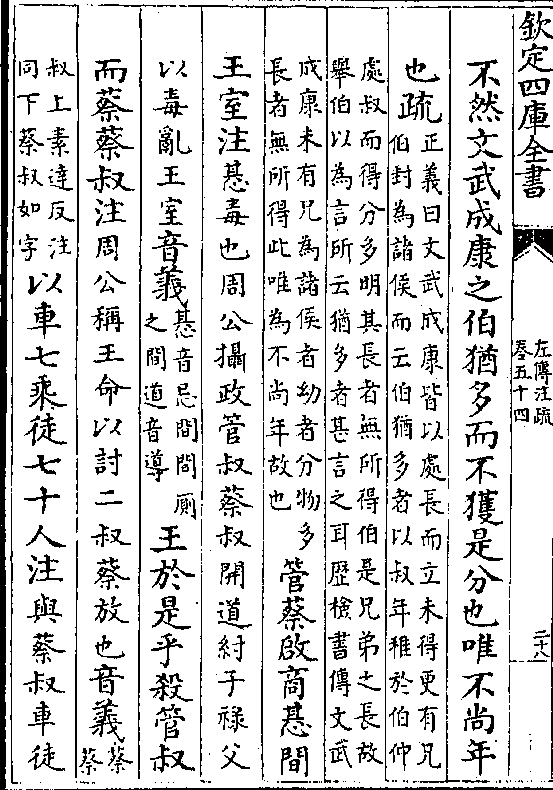 欽定四庫全書
左傳注疏
卷五十四
二十八
不然文武成康之伯猶多而不獲是分也唯不尚年
也疏
正義曰文武成康皆以處長而立未得更有兄
伯封為諸侯而云伯猶多者以叔年稚於伯仲
處叔而得分多明其長者無所得伯是兄弟之長故
舉伯以為言所云猶多者甚言之耳歴檢書傳文武
成康未有兄為諸侯者幼者分物多
長者無所得此唯為不尚年故也
管蔡啟商惎間
王室注惎毒也周公攝政管叔蔡叔開道紂子祿父
以毒亂王室音義
惎音忌間間厠
之間道音導
王於是乎殺管叔
而蔡蔡叔注周公稱王命以討二叔蔡放也音義
蔡
蔡
叔上素達反注
同下蔡叔如字
以車七乘徒七十人注與蔡叔車徒